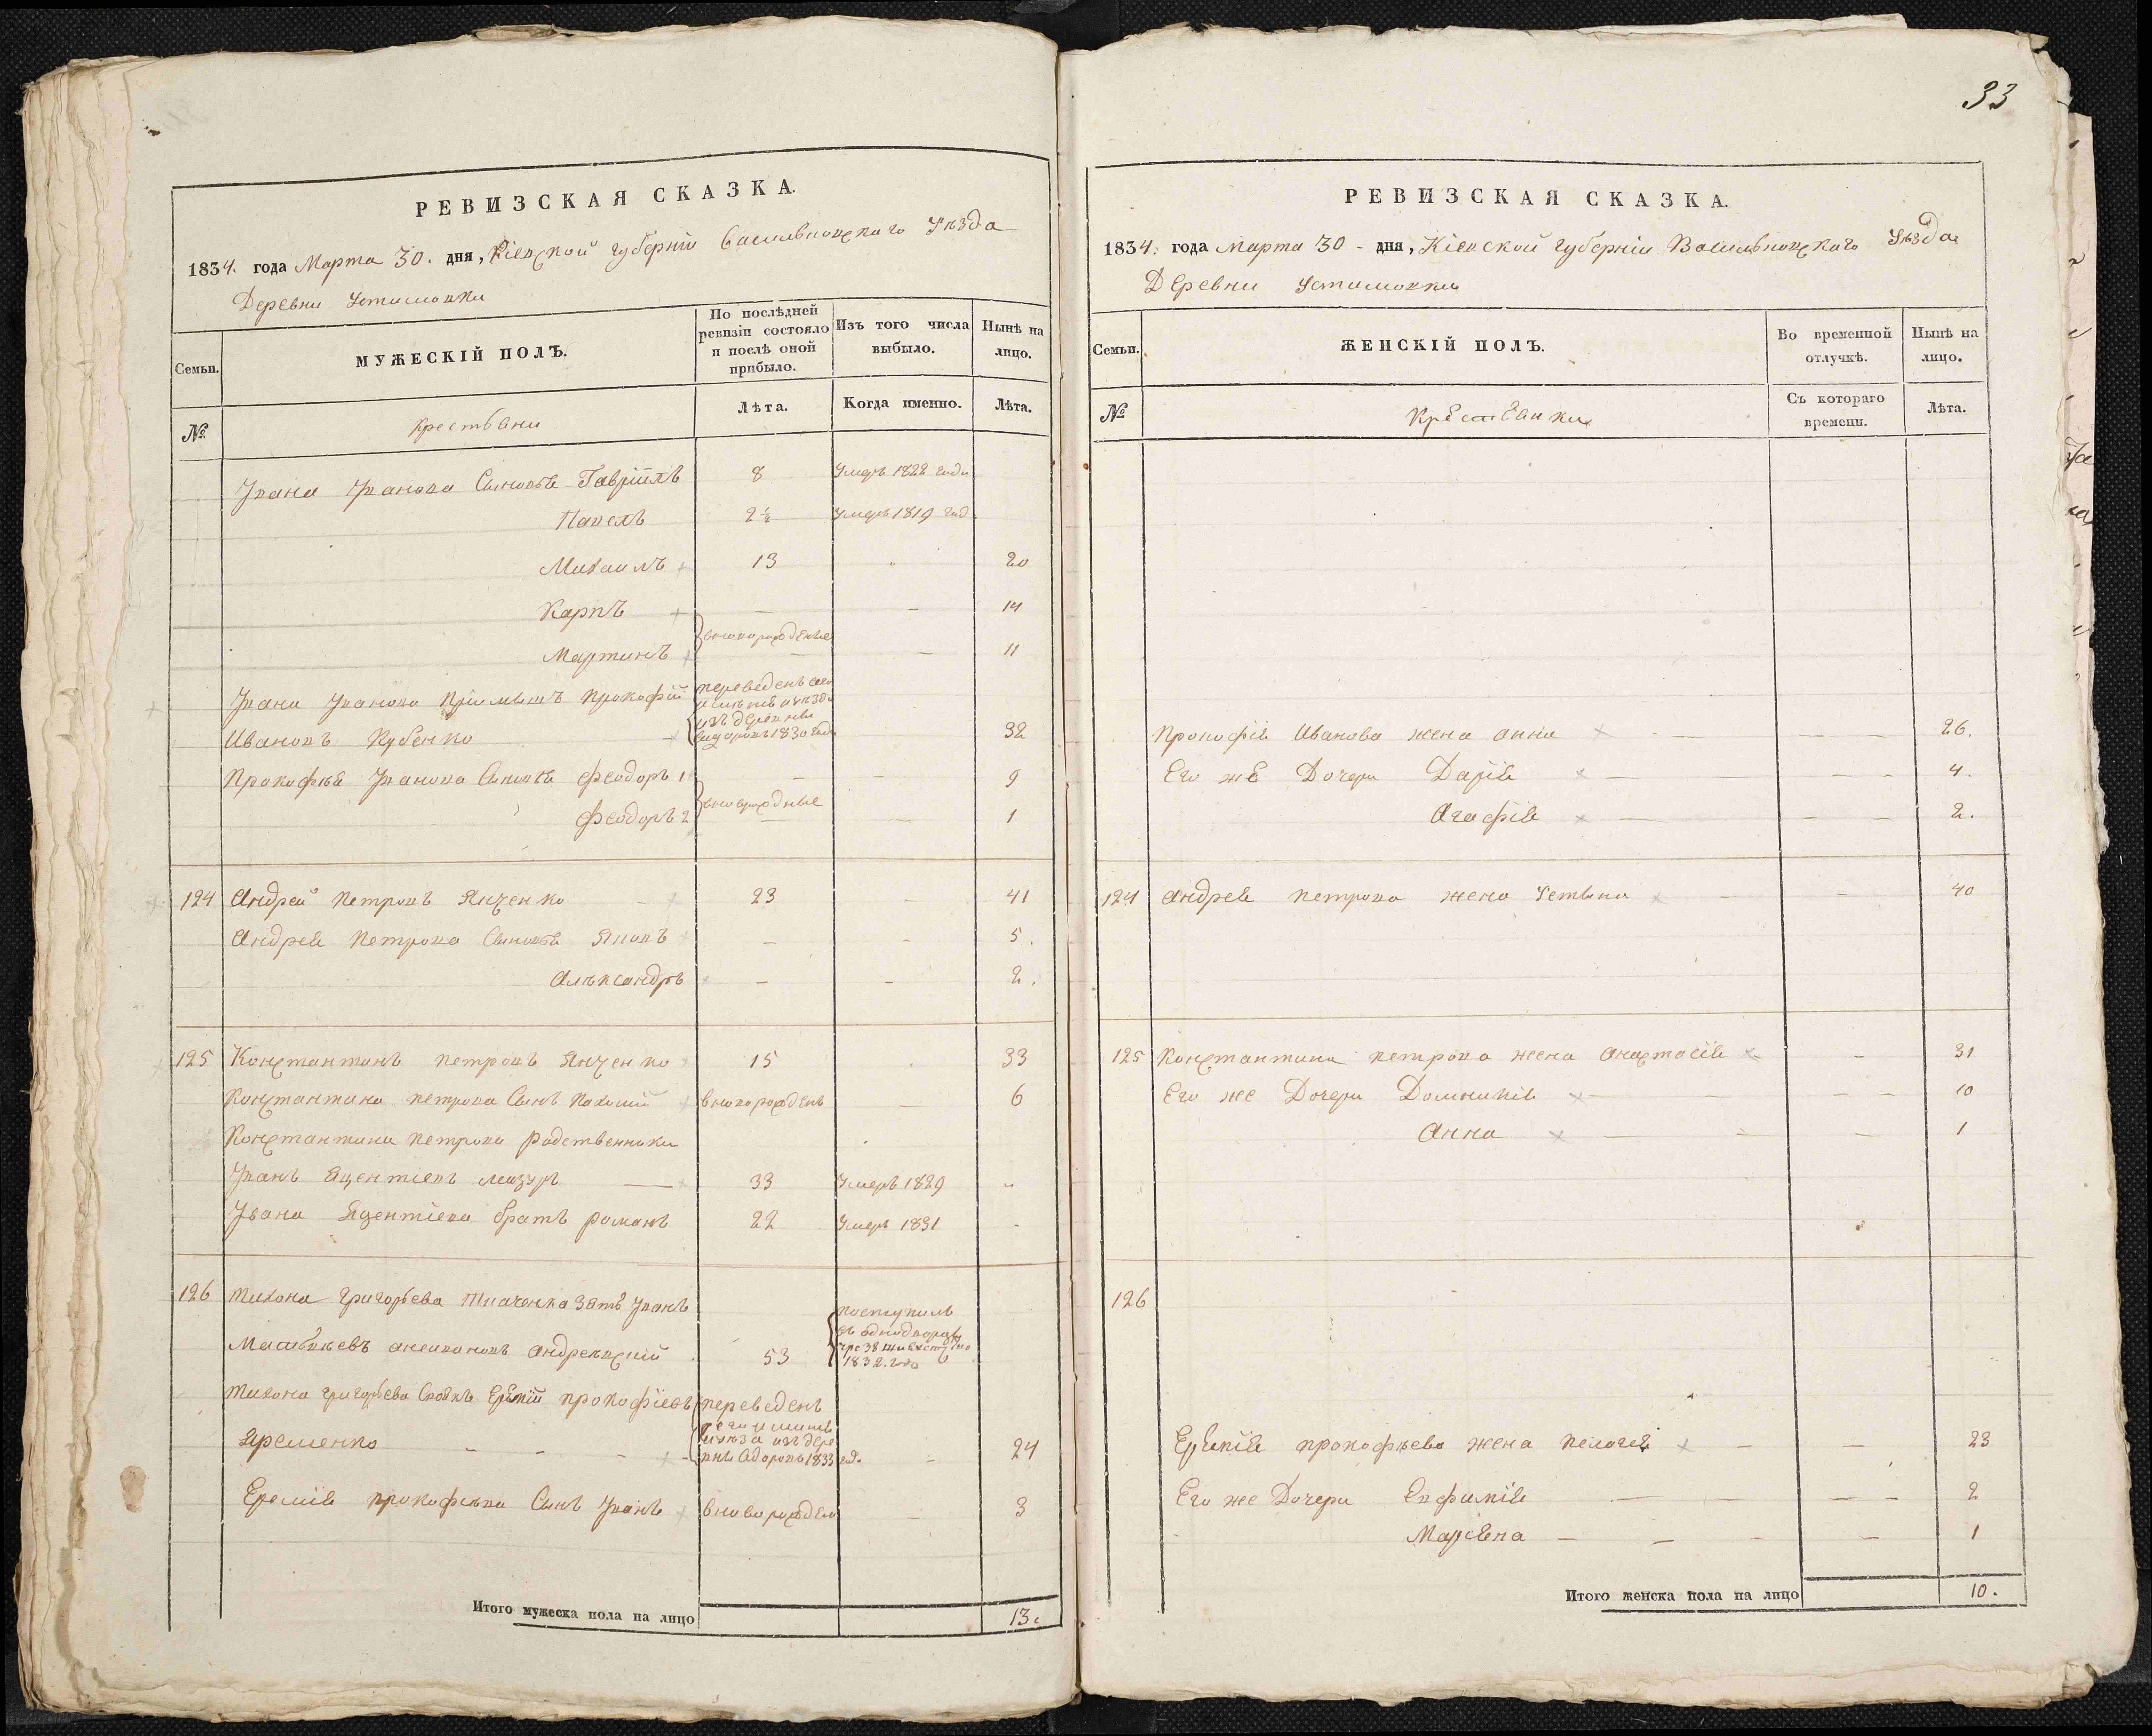 РЕВИЗСКАЯ СКАЗКА.
1834. года Марта 30. дня, Кіевской губерніи Васильковскаго Уѣзда
Деревни Устимовки
Семьи.
МУЖЕСКІЙ ПОЛЪ.
По послѣдней ревизіи состояло и послѣ оной прибыло.
Изъ того числа выбыло.
Нынѣ на лицо.
№
Крестьяни
Лѣта.
Когда именно.
Лѣта.
Ивана Иванова Сыновья Гавріилъ 8 Умеръ 1822 года
Павелъ 2½ Умеръ 1819 год
Михаилъ 13 20
Карпъ — — 14
вноворожденые
Мартинъ — — 11
Ивана Иванова Пріимышъ Прокофій переведенъ
Ивановъ Кубенко изъ деревни 1830 года 32
Прокофья Иванова Сыновья Феодоръ 1 — — 9
вноврожденые
Феодоръ 2 — — 1
124 Андрей Петровъ Янченко — 23 — 41
Андрея Петрова Сыновья Яковъ — — 5.
Александръ — — 2.
125 Константинъ Петровъ Янченко 15 33
Константина Петрова Сынъ Пахомій вноворожденъ — 6
Константина Петрова Родственники
Иванъ Яцентіевъ Мазуръ — 33 Умеръ 1829
Ивана Яцентіева братъ Романъ 22 Умеръ 1831
126 Тихона Григорьева Ткаченка Зять Иванъ поступилъ
Матвѣевъ Андреевскій 53 1832. года
Тихона Григорьева Еремій Прокофіевъ переведенъ
Яременко — — — изъ дере вни 1833 год. — 24
Еремія Прокофьева Сынъ Иванъ вноворожден — 3
Итого мужеска пола на лицо 13.
33
РЕВИЗСКАЯ СКАЗКА.
1834. года Марта 30 - дня, Кіевской губерніи Васильковскаго Уѣзда
Деревни Устимовки
Семьи.
ЖЕНСКІЙ ПОЛЪ.
Во временной отлучкѣ.
Нынѣ на лицо.
№
Крестьянки
Съ котораго времени.
Лѣта.
Прокофія Иванова жена Анна — — — 26.
Его же Дочери Дарія — — — 4.
Агафія — — — 2.
124 Андрея Петрова жена Устына — — 40
125 Константина Петрова жена Анастасія — 31
Его же Дочери Домникія — — — — 10
Анна — — — 1
126
Еремія Прокофьева жена Пелагея — — 23
Его же Дочери Евфимія — — — — 2
Марьяна — — — — 1
Итого женска пола на лицо 10.